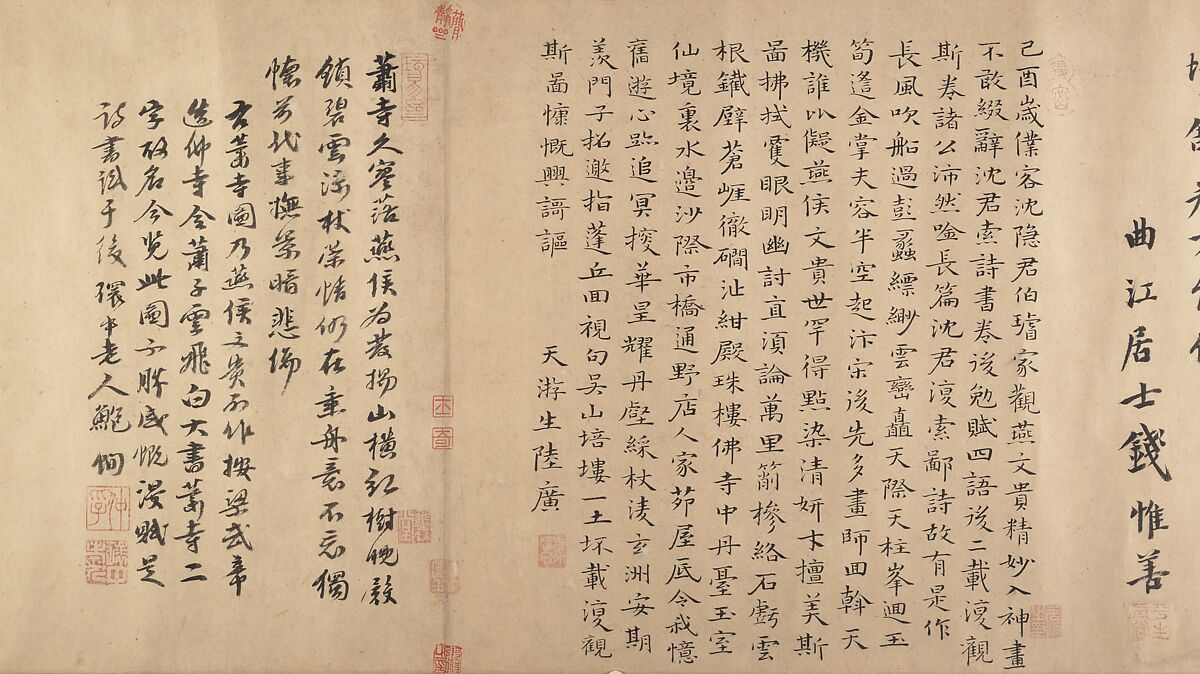 曲江居士錢惟善
己酉歲僕客沈隐君伯璿家觀燕文貴精妙入神畫
不敢綴辭沈君索詩書卷後勉賦四語後二載溲觀
斯卷諸公沛然唫長篇沈君溲索鄙詩故有是作
長風吹船過彭蠡縹緲雲巒矗天際天柱峯迴玉
筍邊金掌夫容半空起汴宋後先多畫師回斡天
機誰比儗燕侯文貴世罕得點染清妍才擅美斯
啚拂拭雙眼明幽討直須論萬里箭槮絡石虧雲
根鐵壁蒼崕徹磵沚紺殿珠樓佛寺中丹臺玉室
仙境裏水邊沙際市橋通野店人家茆屋底令我憶
舊遊心跡追冥搜華星耀丹壑綵杖淩玄洲安期
羨門子招邀指蓬丘回視句吳山培塿一土坏載溲觀
斯啚慷慨興謌謳
天游生陸廣
蕭寺久寥落燕侯为發揚山橫紅樹晚殿
鎖碧雲深杖策情仍在乘舟意不忘獨
懷前代事撫景暗悲傷
右蕭寺圖乃燕侯文貴所作按梁武帝
造佛寺令蕭子雲飛白大書蕭寺二
字故名今览此圖不勝感慨漫賦是
詩書識于後環中老人鮑恂